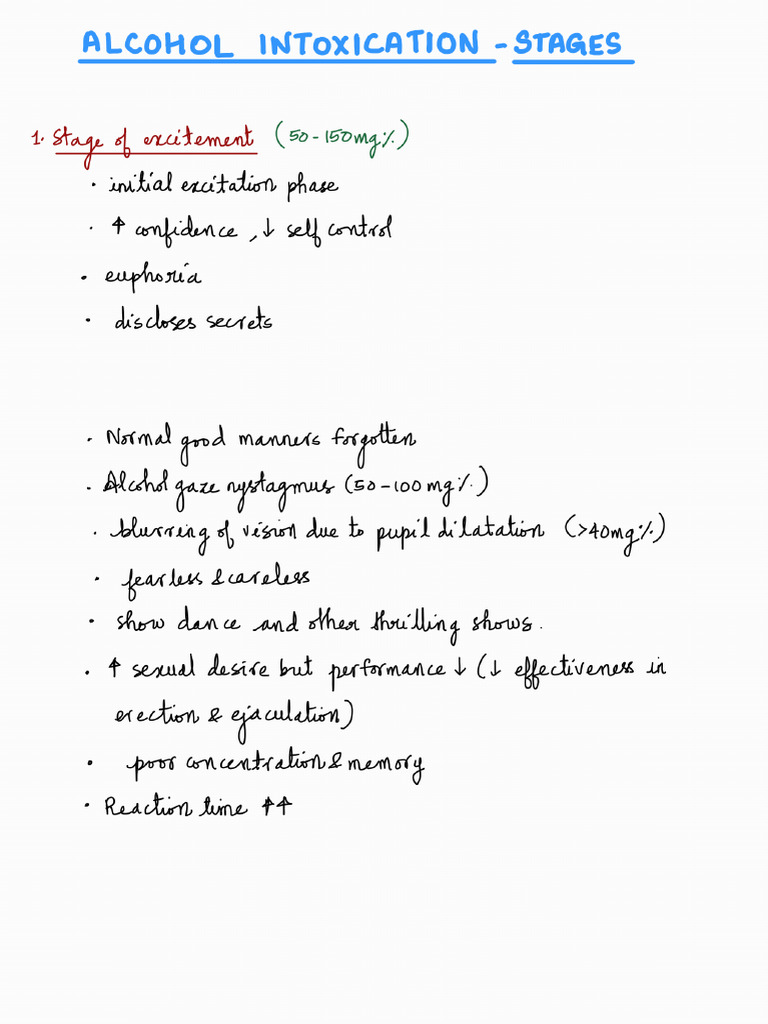 ALCOHOL INTOXICATION - STAGES
1. Stage of excitement (50-150mg%)
· initial excitation phase
· ↑ confidence, ↓ self control
· euphoria
· discloses secrets
· Normal good manners forgotten
· Alcohol gaze nystagmus (50-100mg%)
· blurring of vision due to pupil dilatation (>40mg%)
· fearless & careless
· show dance and other thrilling shows.
· ↑ sexual desire but performance ↓ (↓ effectiveness in
erection & ejaculation)
· poor concentration & memory
· Reaction time ↑↑